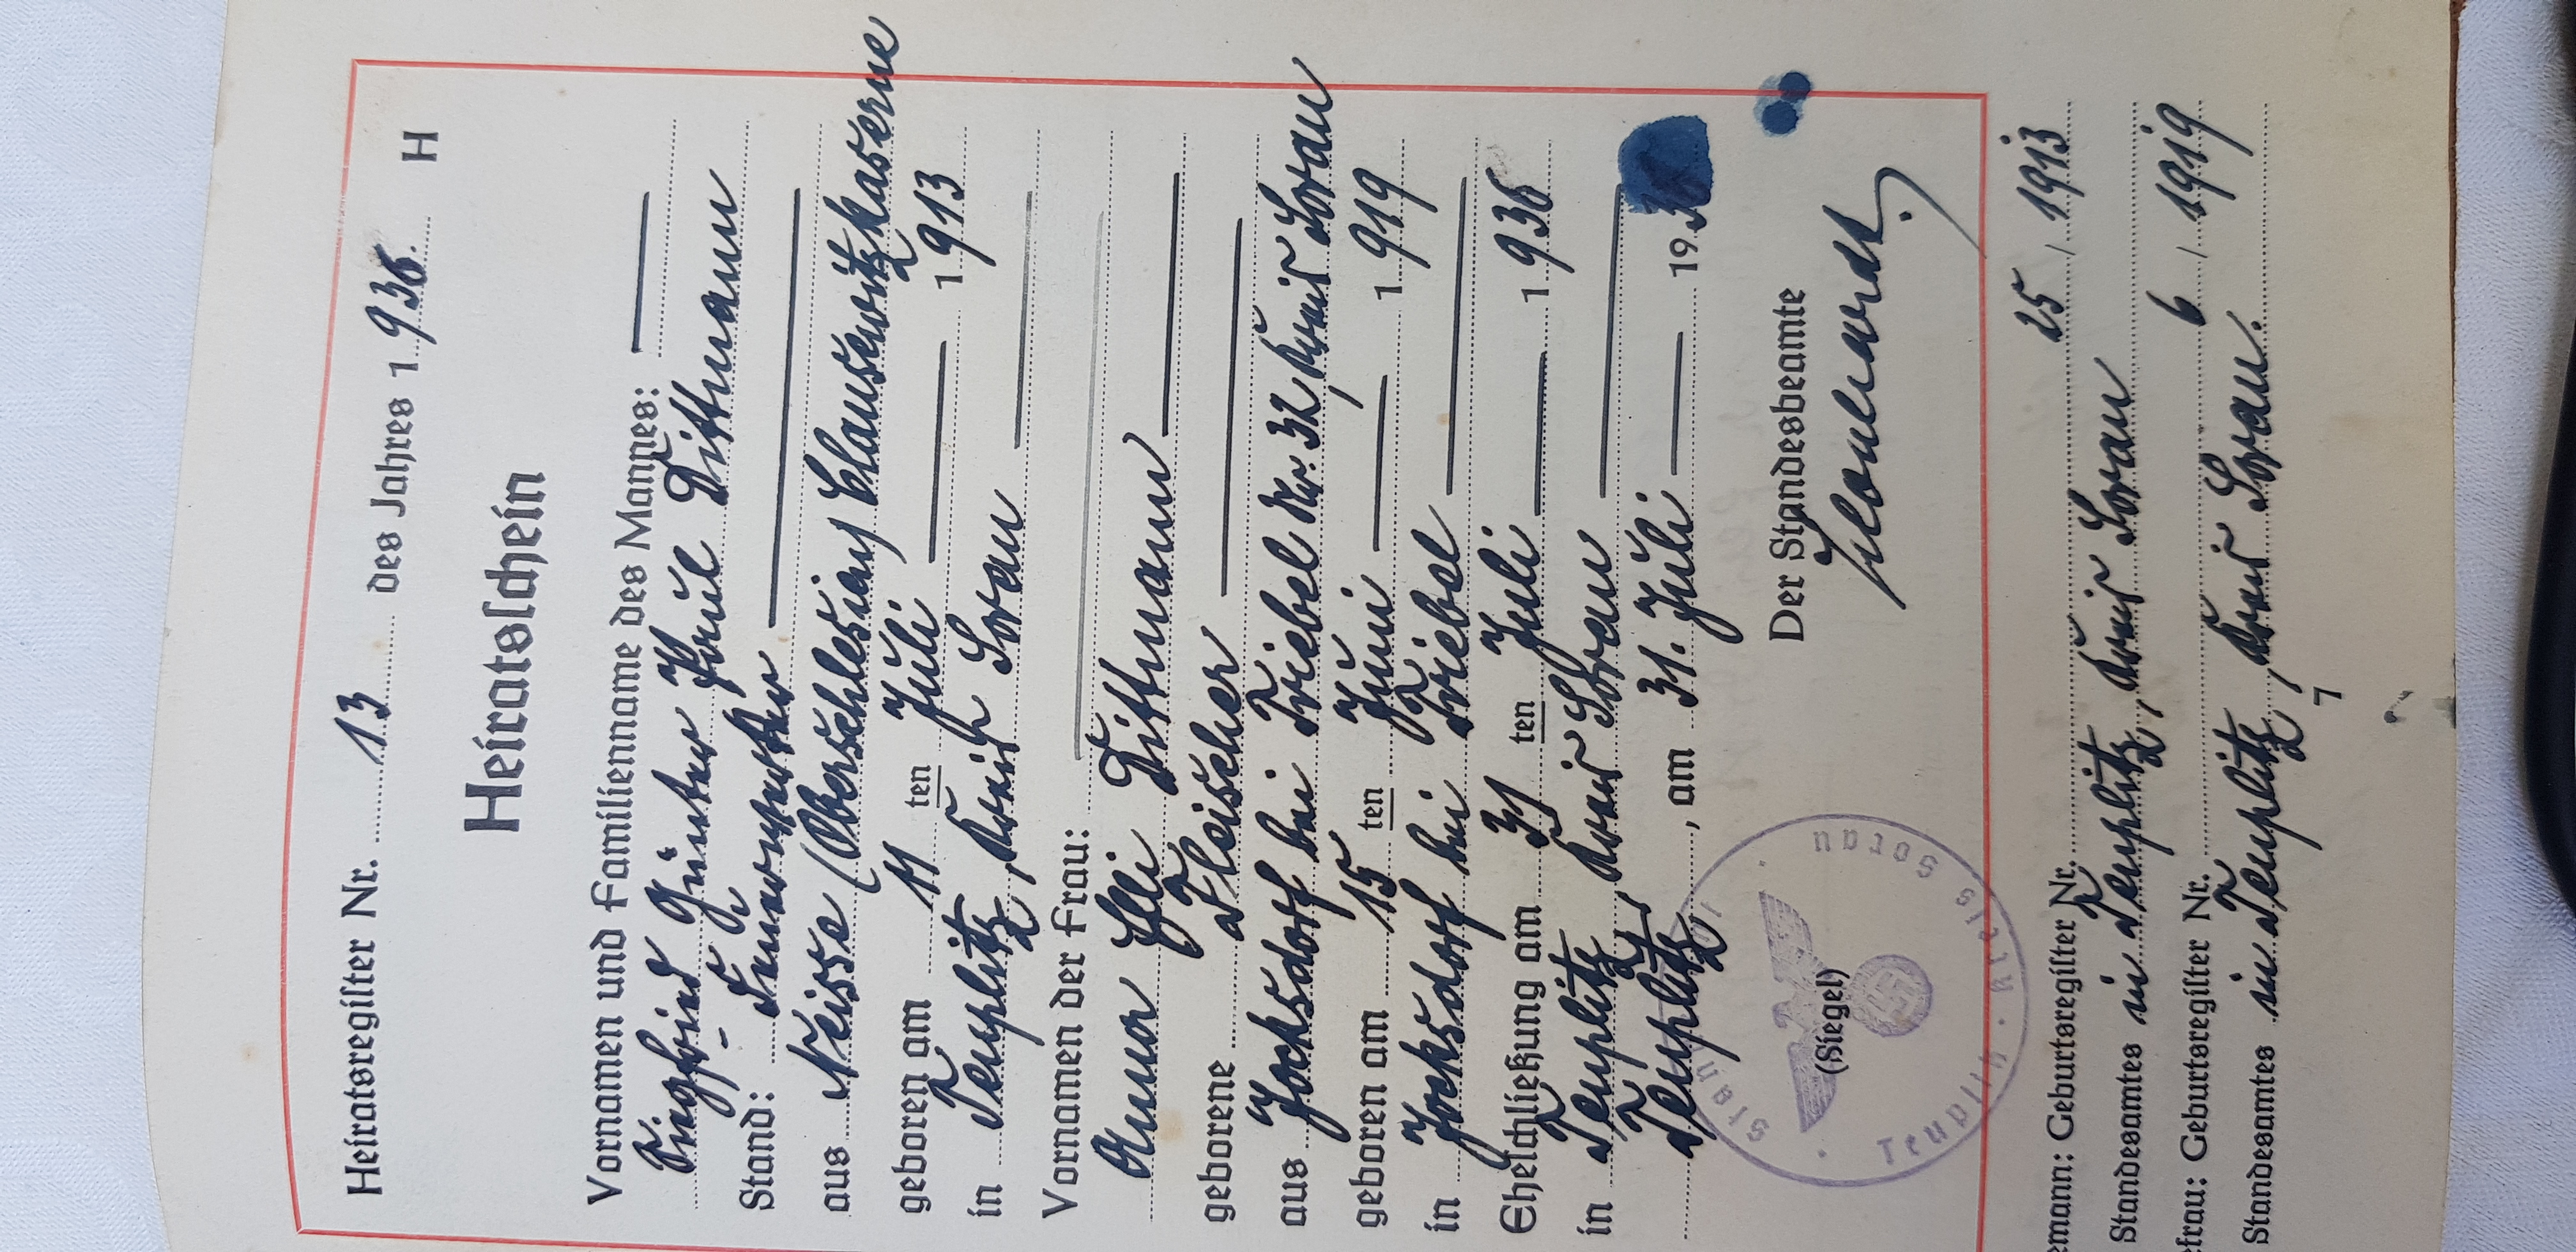 Heiratsregister Nr. 13 des Jahres 1936. H
Heiratsschein
Vornamen und Familienname des Mannes:
Siegfried Günter Paul Dittmann
Stand:
aus Neisse (Oberschlesien) Clausewitzkaserne
geboren am 11 ten Juli 1913
in Teuplitz, Kreis Sorau
Vornamen der Frau:
Anna Elli Dittmann
geborene Fleischer
aus Jocksdorf bei Triebel Nr. 32, Kreis Sorau
geboren am 15 ten Juni 1919
in Jocksdorf bei Triebel
Eheschließung am 31 ten Juli 1936
in Teuplitz, Kreis Sorau
Teuplitz, am 31. Juli 1936
Der Standesbeamte
(Siegel)
Teuplitz · Kreis Sorau
emann: Geburtsregister Nr. 25, 1913
Standesamtes in Teuplitz, Kreis Sorau
efrau: Geburtsregister Nr. 6, 1919
Standesamtes in Teuplitz, Kreis Sorau.
7